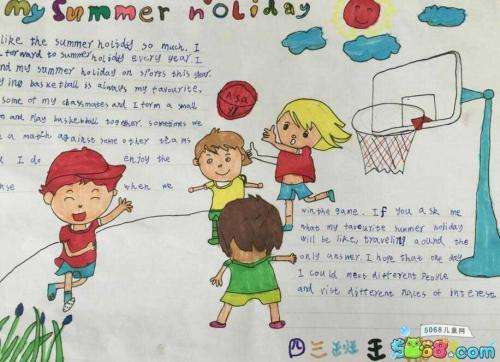 My SUmmer HOLiDAY
like the summer holiday so much. I
forward to summer holiday every year. I
nd my summer holiday on sports this year.
ying basketball is always my favourite,
some of my classmates and I form a small
m and Play basketball together. sometimes we
a match against some other teams
I do enjoy the
nse when we
win the game. If you ask me
what my favourite summer holiday
will be like, traveling around the
only answer. I hope that one day
I could meet different People
and visit different Places of interest
NBA
四 三 班 王
5068儿童网
5068.com